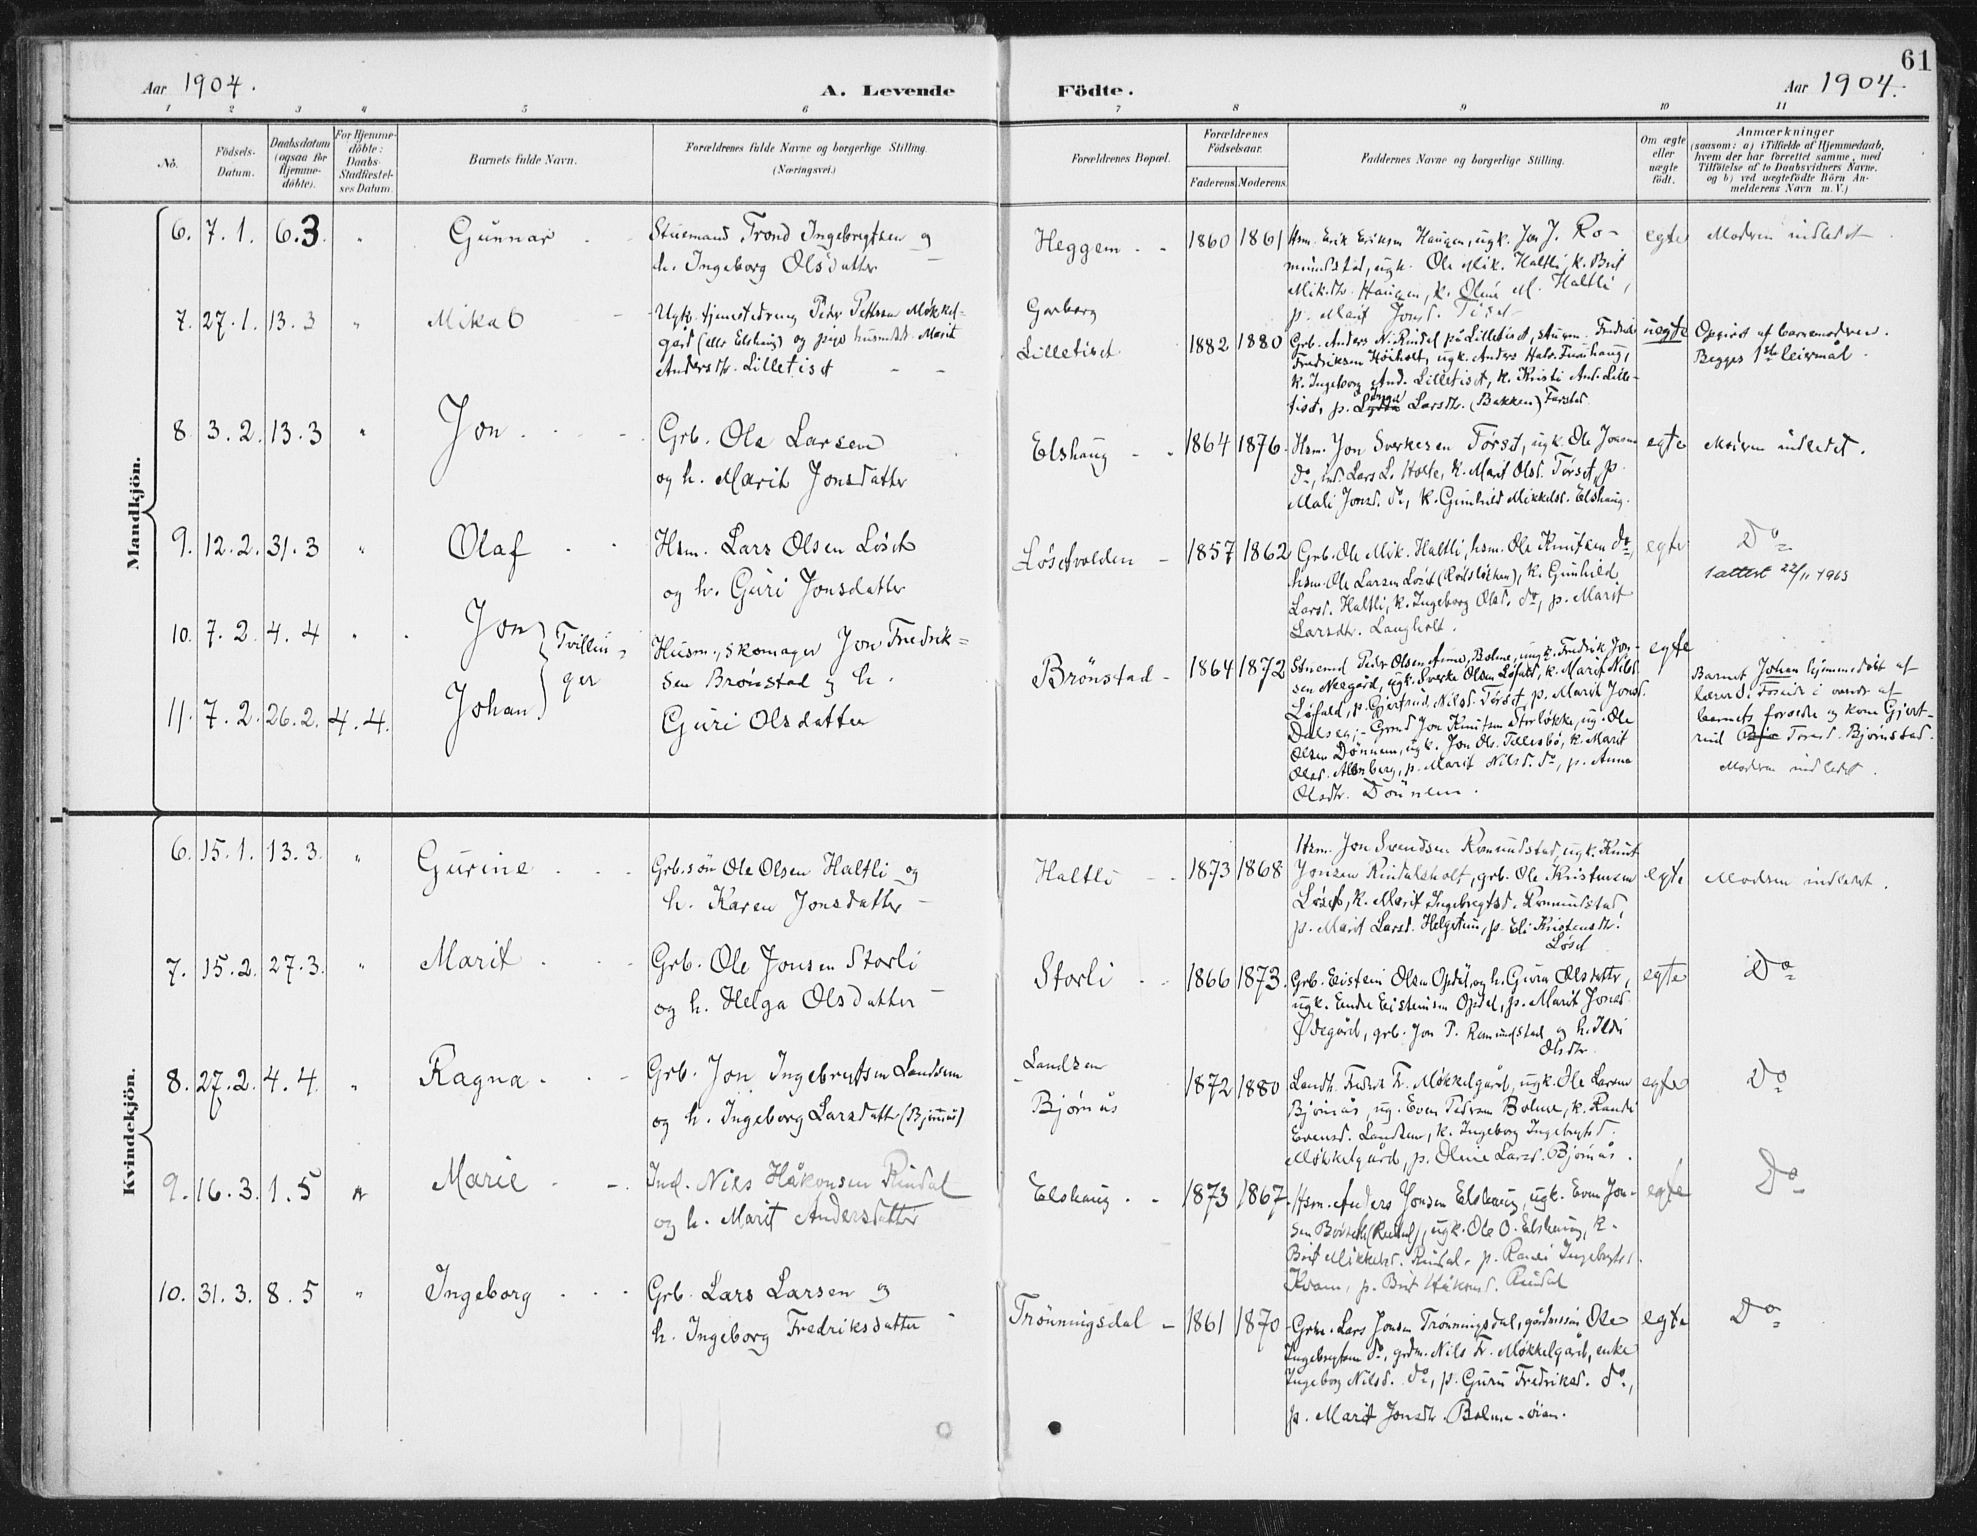 61
Aar 1904.
A. Levende Födte.
Aar 1904.
1 2 3 4 5 6 7 8 9 10 11
No.
Födsels-Datum.
Daabsdatum (ogsaa for Hjemme-döbte).
For Hjemme-döbte: Daabs-Stadfæstel-ses Datum.
Barnets fulde Navn.
Forældrenes fulde Navne og borgerlige Stilling. (Næringsvei.)
Forældrenes Bopæl.
Forældrenes Födselsaar.
Faderens. Moderens.
Faddernes Navne og borgerlige Stilling.
Om ægte eller uægte födt.
Anmærkninger
(saasom: a) i Tilfælde af Hjemmedaab, hvem der har forrettet samme, med Tilföielse af to Daabsvidners Navne, og b) ved uægtefödte Börn An-melderens Navn m. V.)
Mandkjön.
6. 7.1. 6.3 " Gunnar
Stuemand Trond Ingebregtsen og
h. Ingeborg Olsdatter
Heggem 1860 1861
Hsm. Erik Eriksen Haugen, ugk. Jon J. Ro-
mundstad, ugk. Ole Mik. Haltli, k. Brit
Mik.dtr. Haugen, k. Oline M. Haltli,
p. Marit Jonsd. Tiset
egte Moderen indledet
7. 27.1. 13.3 " Mikal
Ugk. tjenestedreng Peder Pettersen Møkkel-
gård (eller Elshaug) og pige husmdtr. Marit
Andersdtr. Lilletiset
Garberg
Lilletiset 1882 1880
Grb. Anders N. Rindal på Lilletiset, stuem. Fredrik
Fredriksen Höiholt, ugk. Anders Halv. Furuhaug,
k. Ingeborg And. Lilletiset, k. Kristi And. Lille-
tiset, p. Larsdtr. (Bakken) Farstad
uegte Opgivet af barnemoderen.
Begges 1ste leiermål.
8 3.2. 13.3 " Jon
Grb. Ole Larsen
og h. Marit Jonsdatter
Elshaug 1864 1876
Hsm. Jon Sverkesen Tørset, ugk. Ole Jonsen
do, ind. Lars L. Holte, k. Marit Olsd. Tørset, p.
Mali Jonsd. do, k. Gunhild Mikkelsd. Elshaug.
egte Moderen indledet.
9. 12.2. 31.3 " Olaf
Hsm. Lars Olsen Løset
og h. Guri Jonsdatter
Løsetvolden 1857 1862
Grb. Ole Mik. Haltli, hsm. Ole Knutsen do,
hsm. Ole Larsen Løset, k. Gunhild
Larsd. Haltli, k. Ingeborg Olsd. do, p. Marit
Larsdtr. Langholt.
egte Do
1 attest 22/11 1965
10. 7.2. 4.4 " Jon
Tvillin-
ger
11. 7.2. 26.2. 4.4. Johan
Husm., skomager Jon Fredrik-
sen Brønstad og h.
Guri Olsdatter
Brönstad 1864 1872
Stuemd Peder Olsen Bolme, ungk. Fredrik Jon-
sen Neegård, ugk. Sverke Olsen Løfald, k. Marit Nils
Løfald, p. Gjertrud Nilsd. Tørset, p. Marit Jonsd.
Dalseg; Grmd Jon Knutsen Storløkke, ug. Ole
Olsen Dønnem, ugk. Jon Ols. Tellesbø, k. Marit
Olsd. Almberg, p. Marit Nilsd. do, p. Anne
Olsdtr. Dönnem.
egte
Barnet Johan hjemmedøbt af
lærer J. i overvær af
barnets forældre og kone Gjert-
rud Torsd. Bjørnstad.
Moderen indledet.
Kvindekjön.
6. 15.1. 13.3. " Gurine
Grb.søn Ole Olsen Haltli og
h. Karen Jonsdatter
Haltli 1873 1868
Hsm. Jon Svendsen Romundstad, ugk. Knut
Jonsen Rindalsholt, grb. Ole Kristensen
Løset, k. Marit Ingebregtsd. Romundstad
p. Marit Larsd. Helgetun, p. Eli Kristensdtr.
Løset
egte Moderen indledet.
7. 15.2. 27.3. " Marit
Grb. Ole Jonsen Storli
og h. Helga Olsdatter
Storli 1866 1873.
Grb. Eistein Olsen Opdøl, og h. Guren Olsdatter,
ugk. Endre Eisteinsen Opdøl, p. Marit Jonsd.
Ødegård, grb. Jon P. Romundstad og h. Ildri
Olsdtr.
egte Do
8. 27.2. 4.4. " Ragna
Grb. Jon Ingebregtsen Landsem
og h. Ingeborg Larsdatter (Bjørnås)
Landsem
Bjørnås 1872 1880
Landh. Fredrik Fr. Møkkelgård, ugk. Ole Larsen
Bjørnås, ug. Even Pedersen Bolme, k. Randi
Evensd. Landsem, k. Ingeborg Ingebrigtsd.
Møkkelgård, p. Oline Larsd. Bjørnås.
egte Do
9. 16.3. 1.5 " Marie
Ind. Nils Håkonsen Rindal
og h. Marit Andersdatter
Elshaug 1873 1867
Hsm. Anders Jonsen Elshaug, ugk. Even Jon-
sen (Rindal), ugk. Ole O. Elshaug, k.
Brit Mikkelsd. Rindal, p. Randi Ingebrigtsd.
Kvam, p. Brit Håkonsd. Rindal
egte Do
10. 31.3. 8.5 " Ingeborg
Grb. Lars Larsen og
h. Ingeborg Fredriksdatter
Trönningsdal 1861 1870
Grbr. Lars Jonsen Trönningsdal, gårdmssön Ole
Ingebregtsen do, grdm. Nils Fr. Møkkelgård, enke
Ingeborg Nilsd. do, p. Guru Fredriksd. do,
p. Marit Jonsdtr. Bolme-øien.
egte Do